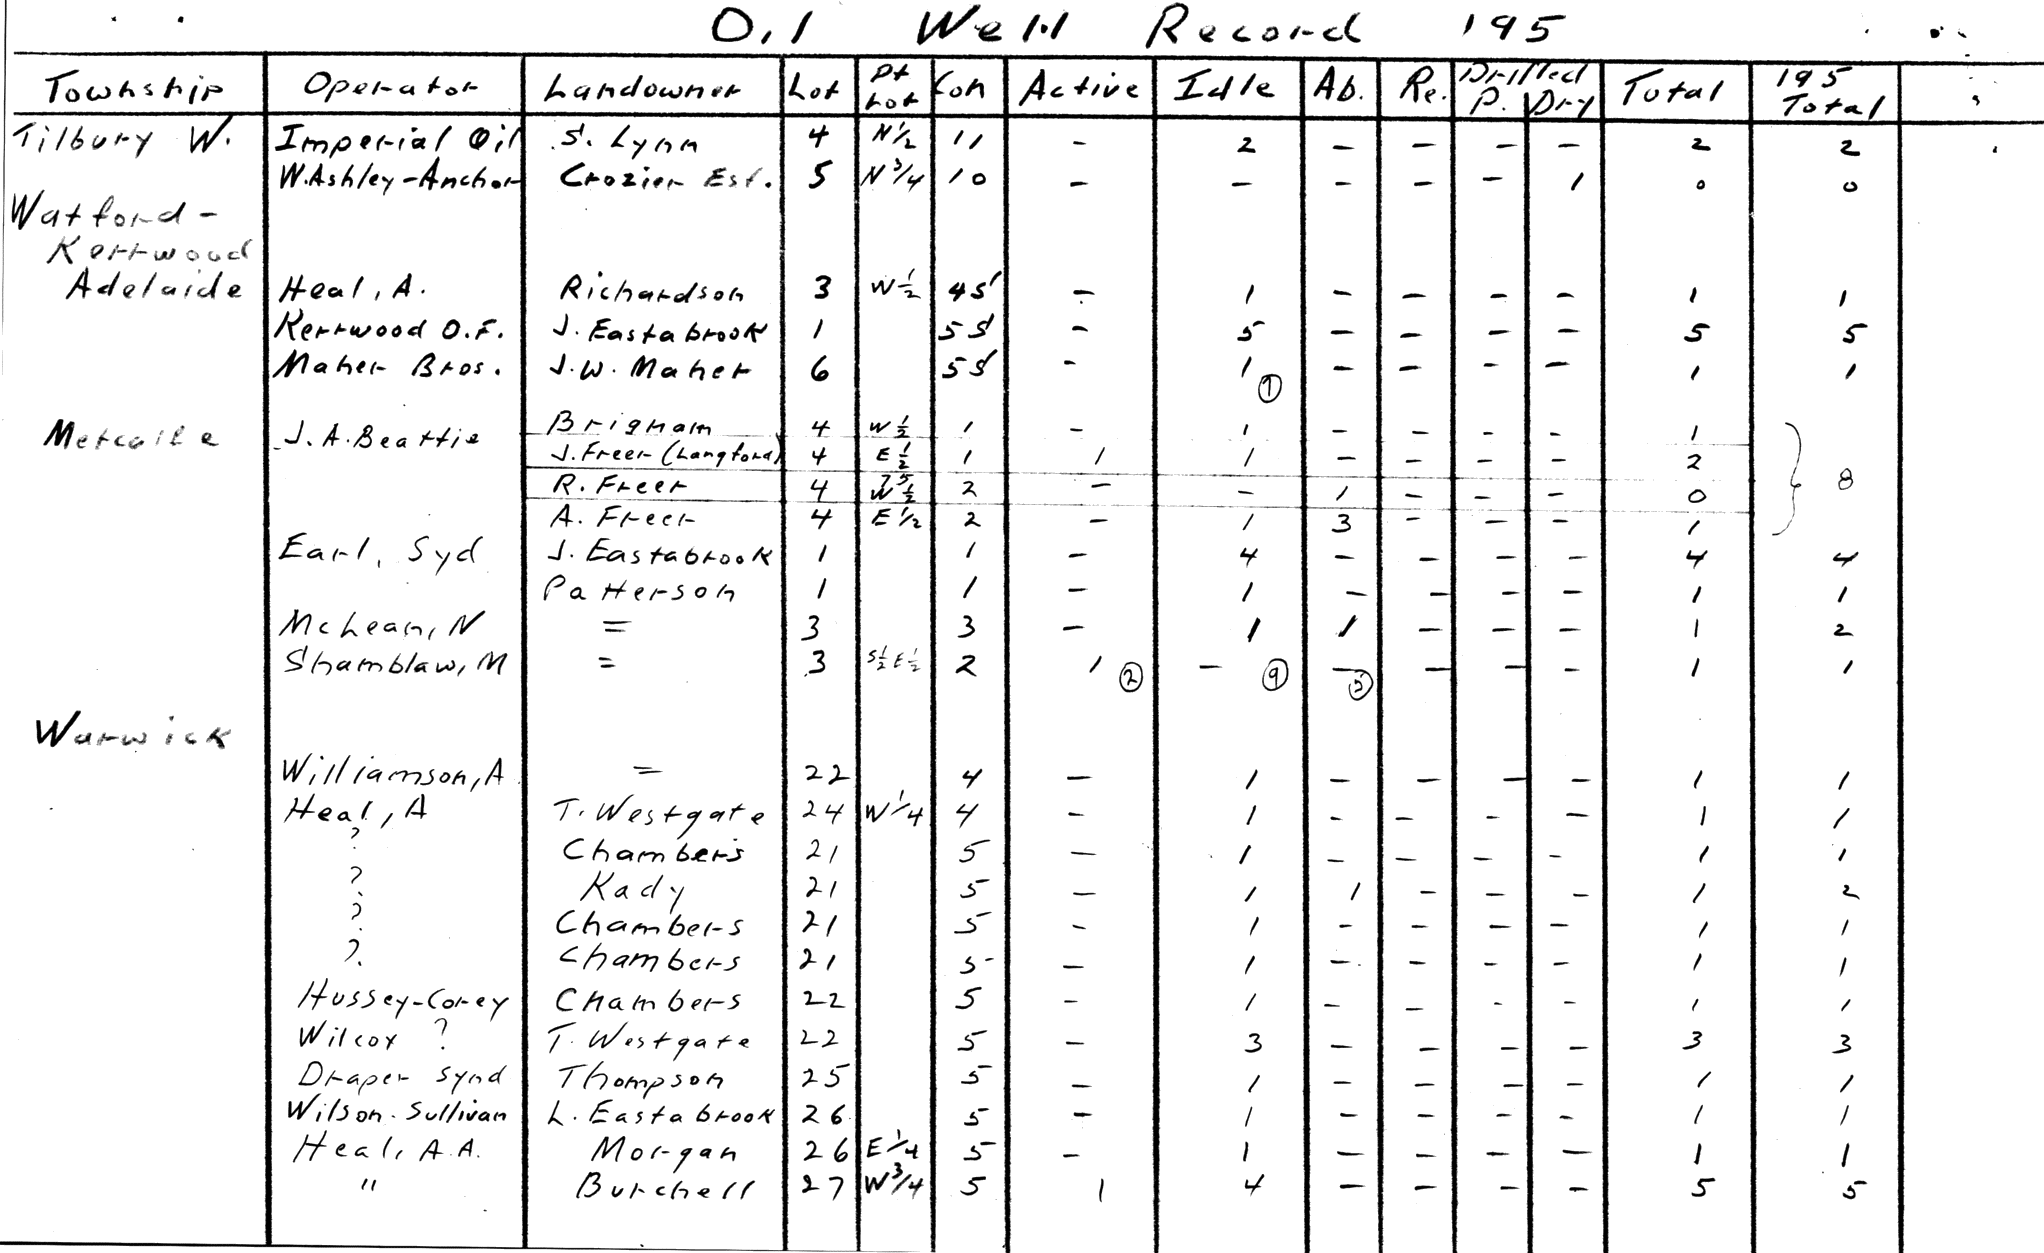 Oil Well Record 195
Township Operator Landowner Lot Pt Lot Con Active Idle Ab. Re. Drilled P. Dry Total 195 Total
Tilbury W. Imperial Oil S. Lynn 4 N½ 11 – 2 – – – – 2 2
W. Ashley-Anchor Crozier Est. 5 N¾ 10 – – – – – 1 0 0
Watford-
Kerrwood
Adelaide Heal, A. Richardson 3 W½ 4S – 1 – – – – 1 1
Kerrwood O.F. J. Eastabrook 1 5S – 5 – – – – 5 5
Maher Bros. J.W. Maher 6 5S – 1 – – – – 1 1
7
Metcalfe J.A. Beattie Brigham 4 W½ 1 – 1 – – – – 1
J. Freer (Langford) 4 E½ 1 1 1 – – – – 2
R. Freer 4 W½ 2 – – 1 – – – 0 8
A. Freer 4 E½ 2 – 1 3 – – – 1
Earl, Syd J. Eastabrook 1 1 – 4 – – – – 4 4
Patterson 1 1 – 1 – – – – 1 1
McLean, N = 3 3 – 1 1 – – – 1 2
Shamblaw, M = 3 S½ E½ 2 1 – – – – – 1 1
2 9 5
Warwick
Williamson, A = 22 4 – 1 – – – – 1 1
Heal, A T. Westgate 24 W¼ 4 – 1 – – – – 1 1
? Chambers 21 5 – 1 – – – – 1 1
? Kady 21 5 – 1 1 – – – 1 2
? Chambers 21 5 – 1 – – – – 1 1
? Chambers 21 5 – 1 – – – – 1 1
Hussey-Corey Chambers 22 5 – 1 – – – – 1 1
Wilcox ? T. Westgate 22 5 – 3 – – – – 3 3
Draper Synd Thompson 25 5 – 1 – – – – 1 1
Wilson-Sullivan L. Eastabrook 26 5 – 1 – – – – 1 1
Heal, A.A. Morgan 26 E¼ 5 – 1 – – – – 1 1
" Burchell 27 W¾ 5 1 4 – – – – 5 5